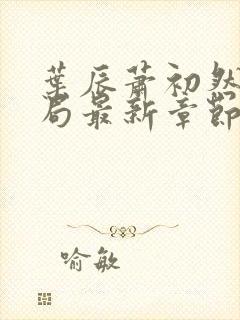 葉辰蕭初然
局最新章節
喻敏